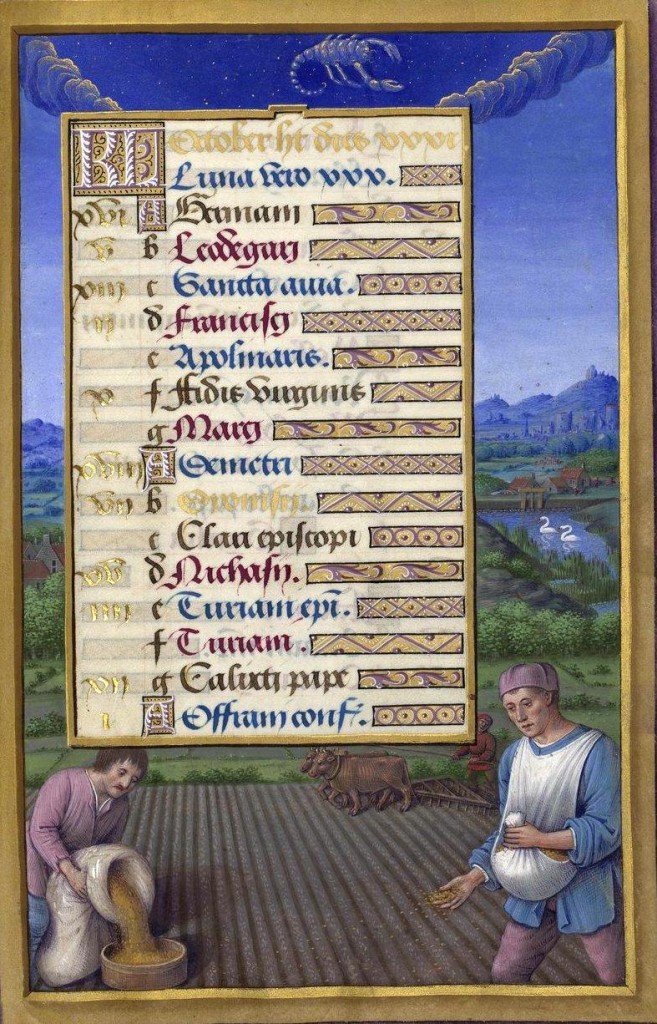 KL October ht dies xxxi
Luna vero xxx.
xvi A Germani
v b Leodegarj
xiii c Sancta auia.
ii d Francisci
e Apolinaris.
x f Fidis virginis
g Marci
xviii A Demetri
vii b Dyonisii
c Clari episcopi
xv d Nichasij.
iiii e Turiani epi.
f Turiani.
xii g Calixti pape
i A Offrani conf.